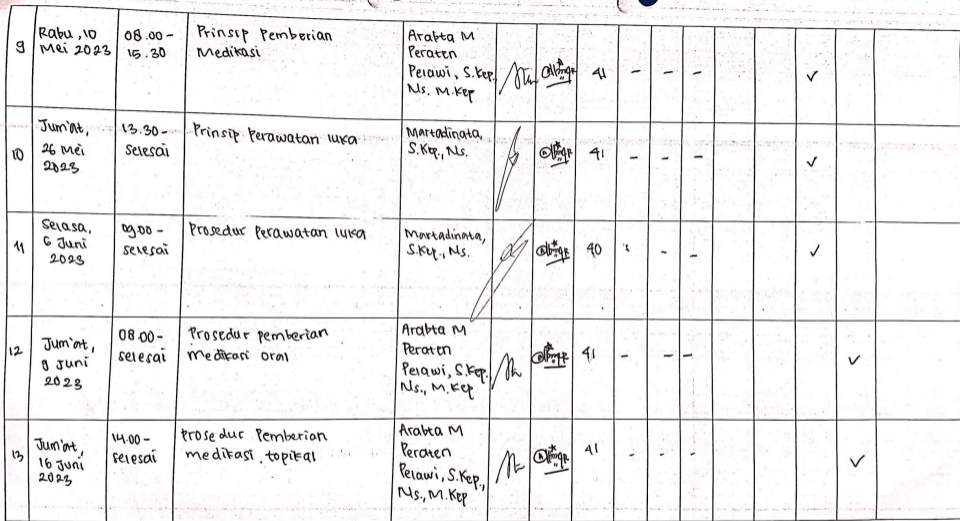 9 Rabu, 10 Mei 2023 08.00 - 15.30 Prinsip Pemberian Medikasi Arabta M Peraten Pelawi, S.Kep, Ns. M.Kep 41 - - - ✓
10 Jum'at, 26 Mei 2023 13.30 - Selesai Prinsip Perawatan luka Martadinata, S.Kep., Ns. 41 - - - ✓
11 Selasa, 6 Juni 2023 09.00 - selesai Prosedur Perawatan luka Martadinata, S.Kep., Ns. 40 - - ✓
12 Jum'at, 9 Juni 2023 08.00 - selesai Prosedur pemberian medikasi oral Arabta M Peraten Pelawi, S.Kep. Ns., M.Kep 41 - - - ✓
13 Jum'at, 16 Juni 2023 14.00 - selesai Prosedur Pemberian medikasi topikal Arabta M Peraten Pelawi, S.Kep., Ns., M.Kep 41 - - - ✓